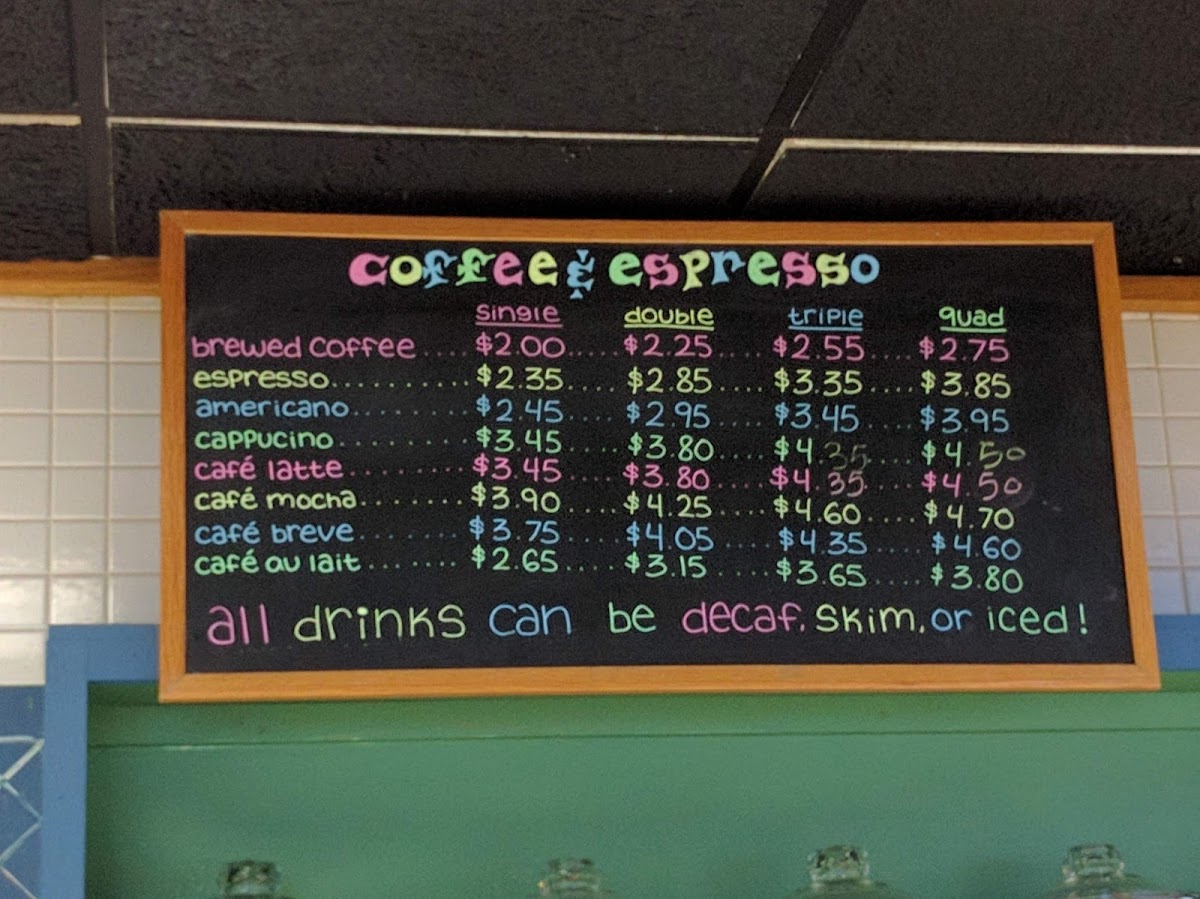 coffee & espresso
single double triple quad
brewed coffee .... $2.00 .... $2.25 .... $2.55 .... $2.75
espresso .......... $2.35 .... $2.85 .... $3.35 .... $3.85
americano ........ $2.45 .... $2.95 .... $3.45 .... $3.95
cappucino ......... $3.45 .... $3.80 .... $4.35 .... $4.50
café latte ......... $3.45 .... $3.80 .... $4.35 .... $4.50
café mocha ........ $3.90 .... $4.25 .... $4.60 .... $4.70
café breve ........ $3.75 .... $4.05 .... $4.35 .... $4.60
café au lait ....... $2.65 .... $3.15 .... $3.65 .... $3.80
all drinks can be decaf, skim, or iced!